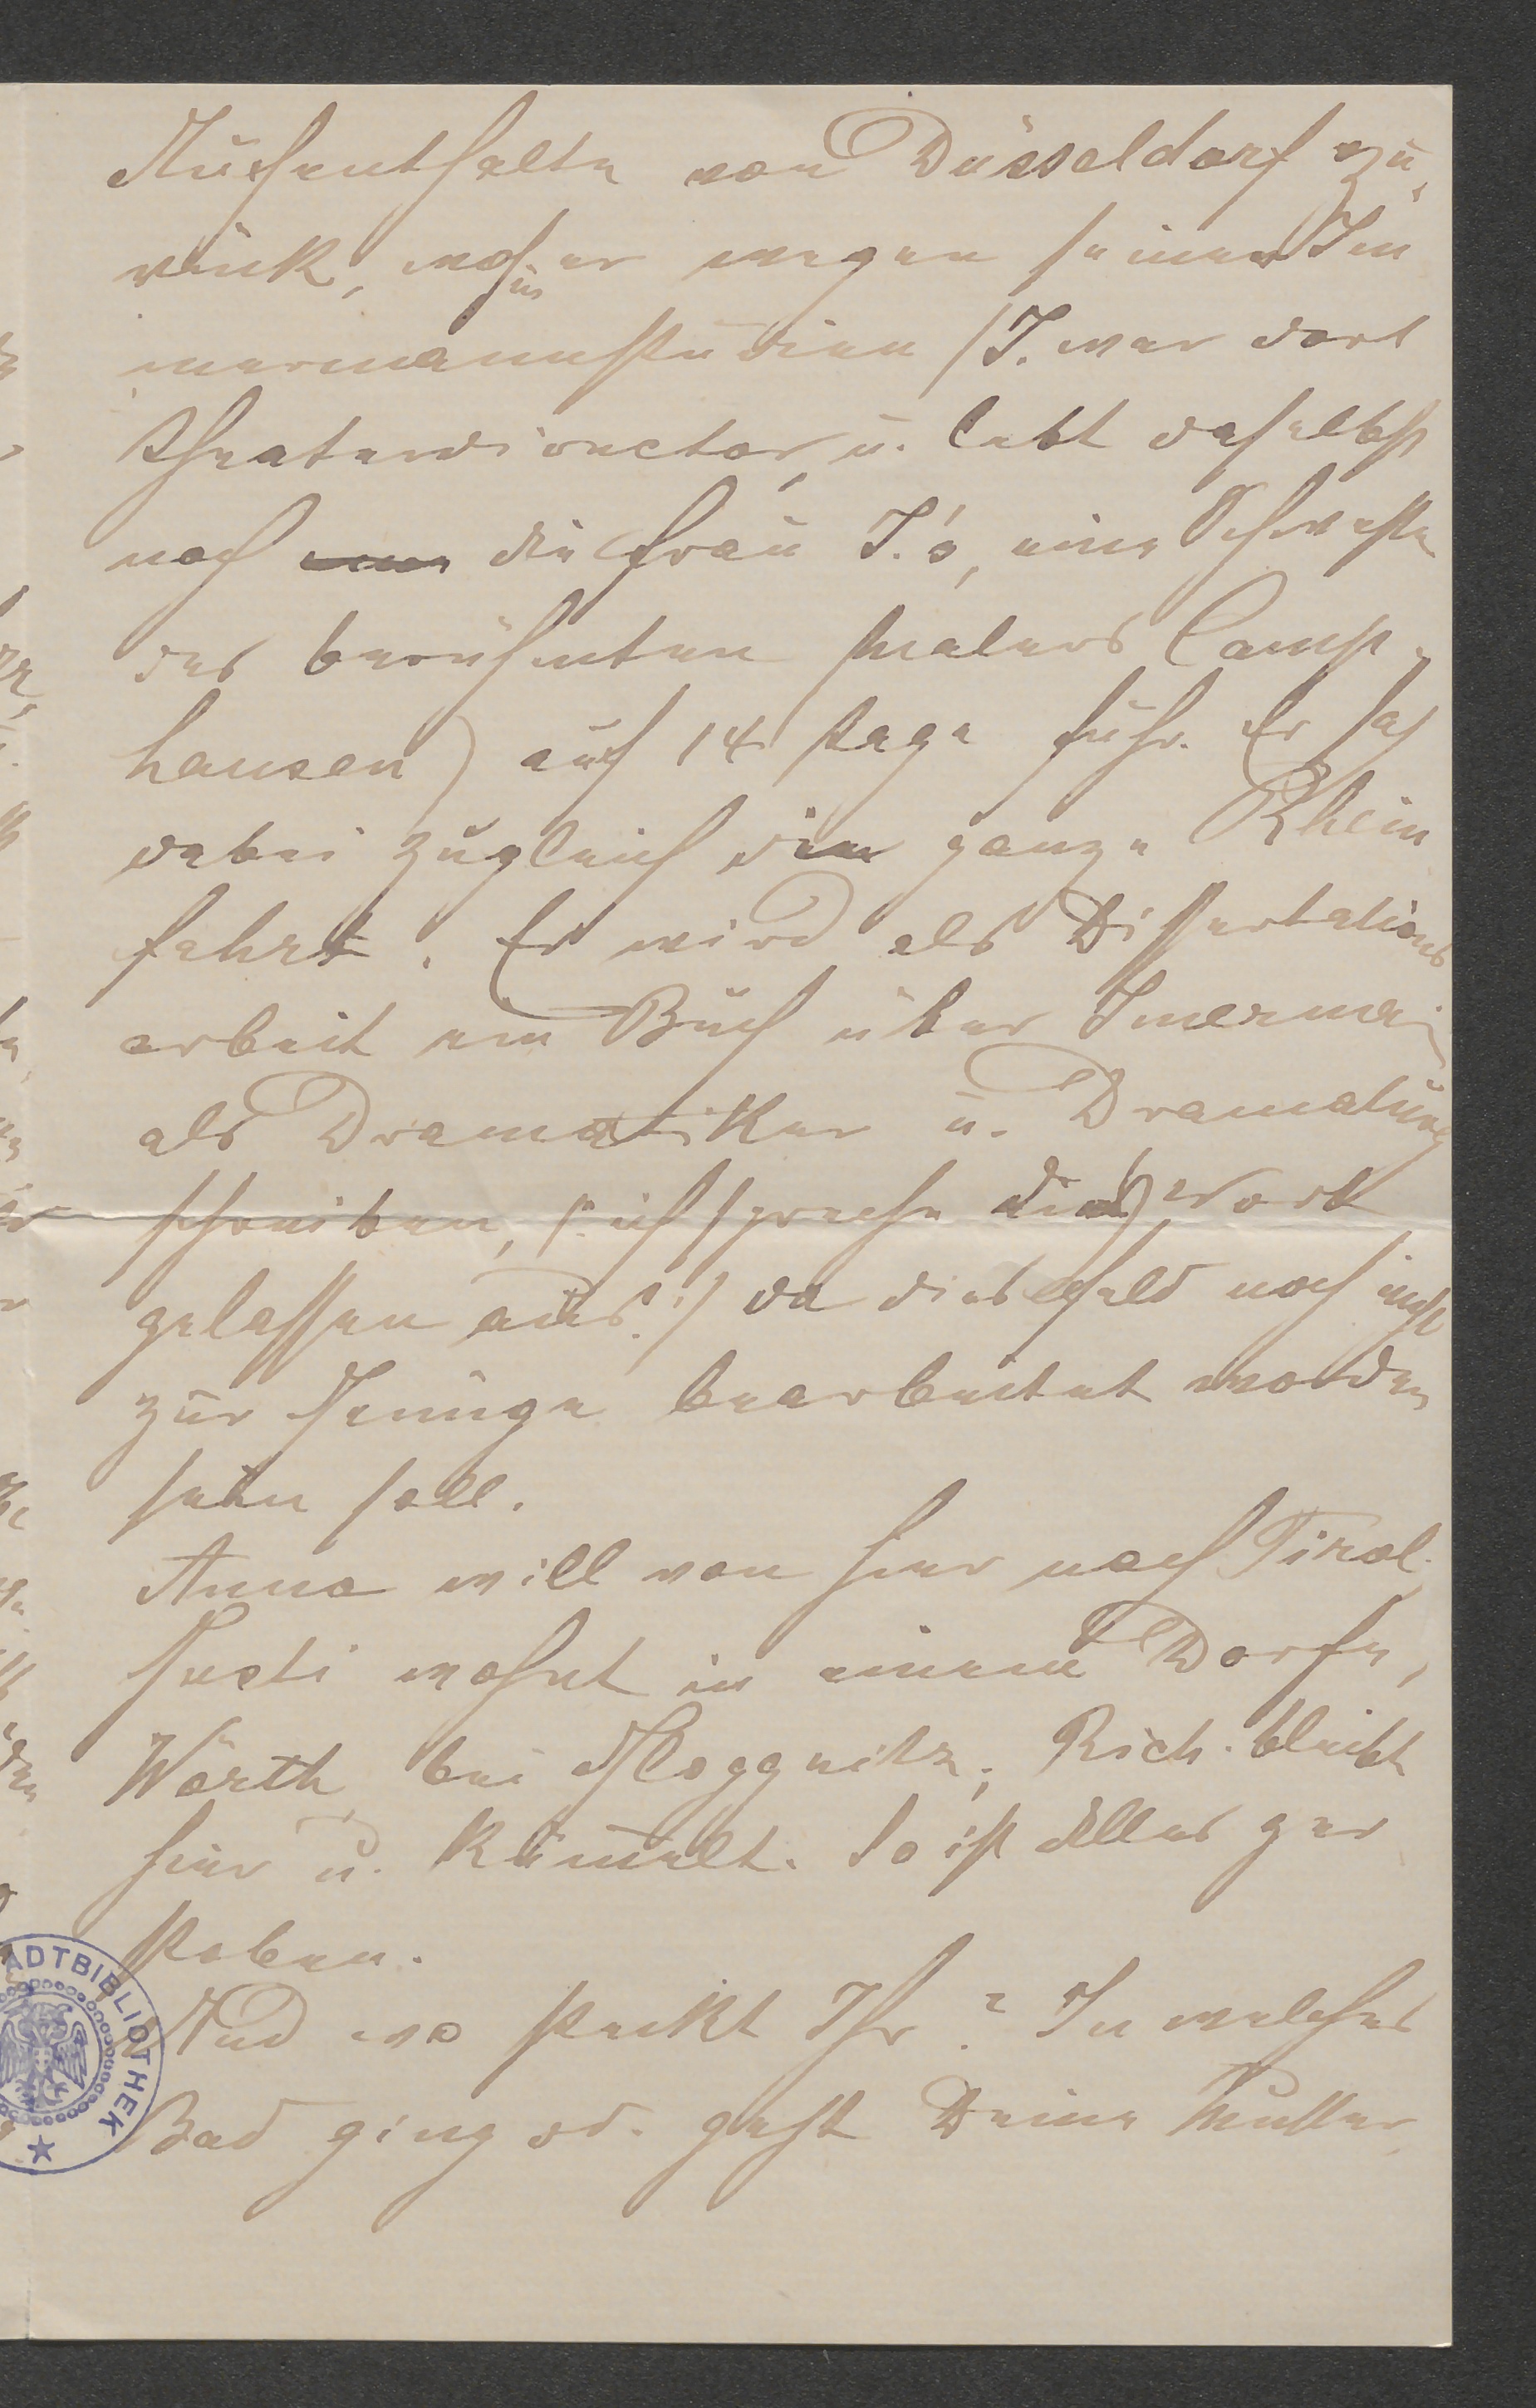 Aufenthalte von Düsseldorf zu-
rück, wohin er wegen seiner Im
mermannstudien (I. war dort
Theaterdirector, u. lebt daselbst
noch die Frau I.'s, eine Schwester
des berühmten Malers Camp-
hausen) auf 14 Tage fuhr. Er sah
dabei zugleich die ganze Rhein
fahrt. Er wird als Dissertations
arbeit ein Buch über Imerman
als Dramatiker u. Dramaturg
schreiben, (: ich spreche dies Wort
gelassen aus :) da dies Feld noch nicht
zur Genüge bearbeitet worden
sein soll.
Anna will von hier nach Tirol.
Gusti wohnt in einem Dorfe,
Wörth bei Gloggnitz; Rich. bleibt
hier u. kümelt. So ist Alles ger
stoben.
Und wo steckt Ihr? In welches
Bad ging od. geht Deine Mutter,
STADTBIBLIOTHEK